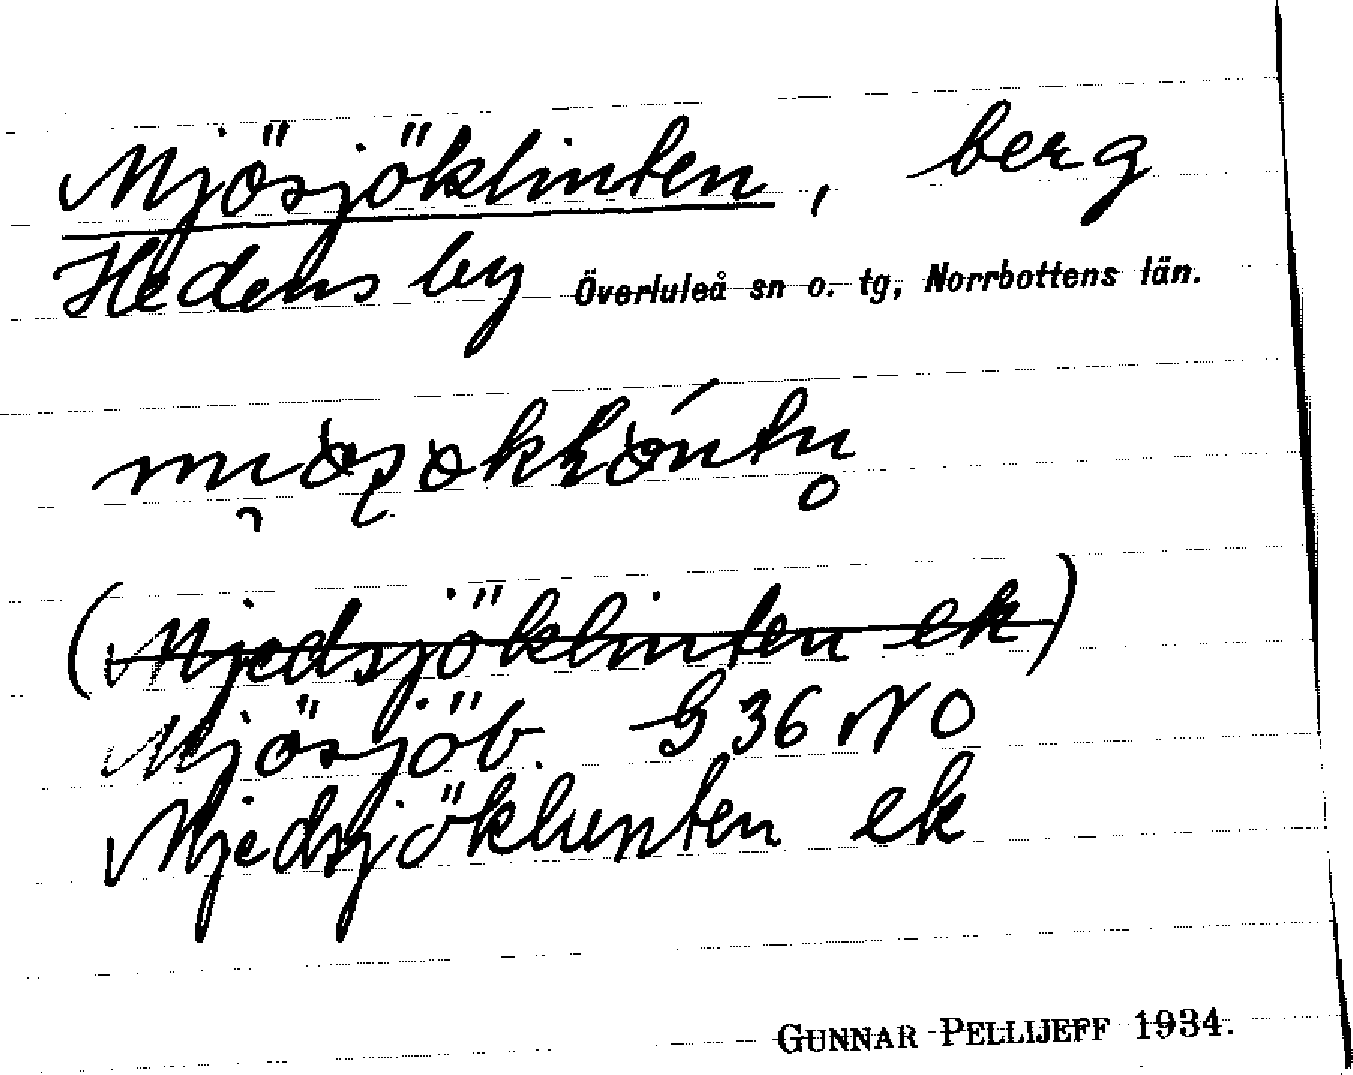 Mjösjöklinten, berg
Hedens by Överluleå sn o. tg, Norrbottens län.
(Mjedsjöklinten ek)
Mjösjöb. G 36 NO
Mjedsjöklunten ek
GUNNAR PELLIJEFF 1934.